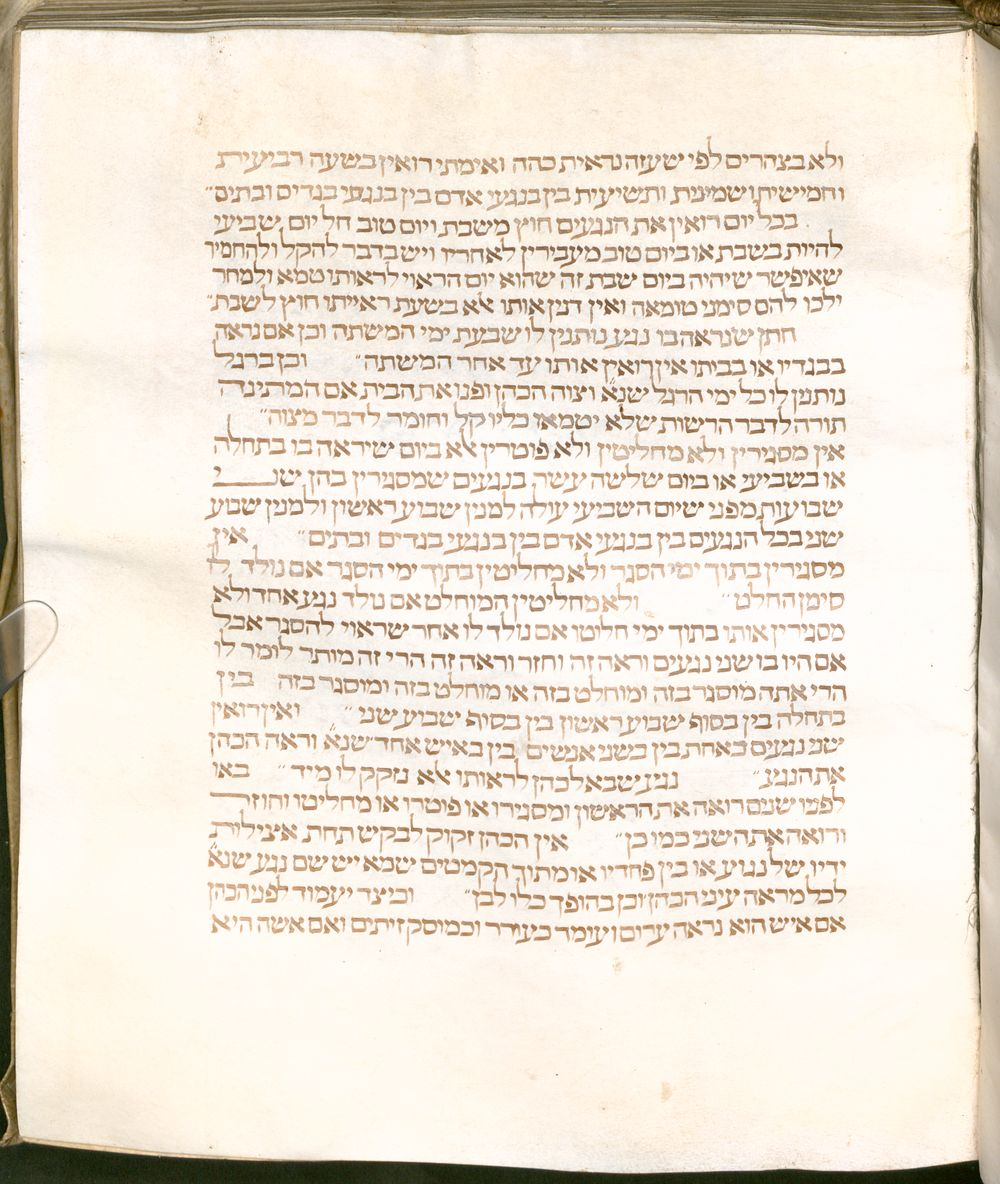 ולא בצהרים לפי שעזה נראית כהה ואימתי רואין בשעה רביעית
וחמישית ושמינית ותשיעית בין בנגעי אדם בין בנגעי בגדים ובתים״
בכל יום רואין את הנגעים חוץ משבת ויום טוב חל יום שביעי
להיות בשבת או ביום טוב מעבירין לאחריו ויש בדבר להקל ולהחמיר
שאיפשר שיהיה ביום שבת זה שהוא יום הראוי לראותו טמא ולמחר
ילכו להם סימני טומאה ואין דנין אותו אלא בשעת ראייתו חוץ לשבת״
חתן שנראה בו נגע נותנין לו שבעת ימי המשתה וכן אם נראה
בבגדיו או בביתו אין רואין אותו עד אחר המשתה״ וכן ברגל
נותנין לו כל ימי הרגל שנא׳ וצוה הכהן ופנו את הבית אם המתינה
תורה לדבר הרשות שלא יטמאו כליו קל וחומר לדבר מצוה״
אין מסגירין ולא מחליטין ולא פוטרין אלא ביום שיראה בו בתחלה
או בשביעי או ביום שלשה עשר בנגעים שמסגירין בהן שני
שבועות מפני שיום השביעי עולה למנין שבוע ראשון ולמנין שבוע
שני בכל הנגעים בין בנגעי אדם בין בנגעי בגדים ובתים״ אין
מסגירין בתוך ימי הסגר ולא מחליטין בתוך ימי הסגר אם נולד לו
סימן החלט״ ולא מחליטין המוחלט אם נולד נגע אחד ולא
מסגירין אותו בתוך ימי חלוטו אם נולד לו אחר שראוי להסגר אבל
אם היו בו שני נגעים וראה זה וחזר וראה זה הרי זה מותר לומר לו
הרי אתה מוסגר בזה ומוחלט בזה או מוחלט בזה ומוסגר בזה בין
בתחלה בין בסוף שבוע ראשון בין בסוף שבוע שני״ ואין רואין
שני נגעים כאחת בין בשני אנשים בין באיש אחד שנא׳ וראה הכהן
את הנגע״ נגע שבא לכהן לראותו לא נזקק לו מיד״ באו
לפניו שנים רואה את הראשון ומסגירו או פוטרו או מחליטו וחוזר
ורואה את השני כמו כן״ אין הכהן זקוק לבקש תחת אצילות
ידיו של נגוע או בין פחדיו או מתוך הקמטים שמא יש שם נגע שנא׳
לכל מראה עיני הכהן וכן בהופך כלו לבן״ וכיצד יעמוד לפני הכהן
אם איש הוא נראה ערום ועומד כעודר וכמוסק זיתים ואם אשה היא